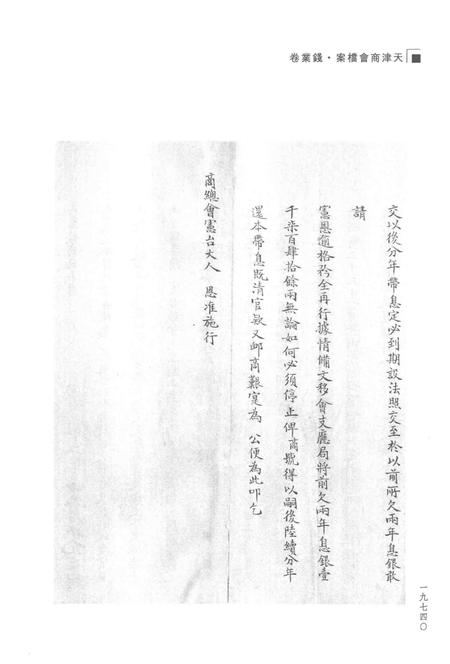 天津商會檔案・錢業卷
交以後分年帶息定必到期設法照交至於以前所欠兩年息銀敢
請
憲恩逾格矜全再行據情備文移會支應局將前欠兩年息銀壹
千柒百肆拾餘兩無論如何必須停止俾商號得以嗣後陸續分年
還本帶息既清官款又卹商艱寔為 公便為此叩乞
商總會憲台大人 恩准施行
一九七四〇